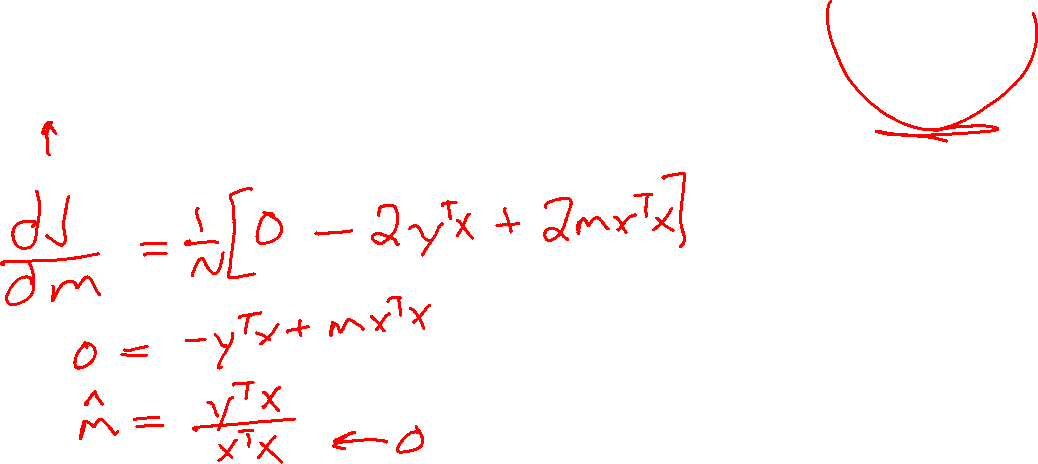 dJ/dm = 1/N [0 - 2yᵀx + 2mxᵀx]
0 = -yᵀx + mxᵀx
m̂ = yᵀx / xᵀx ← 0